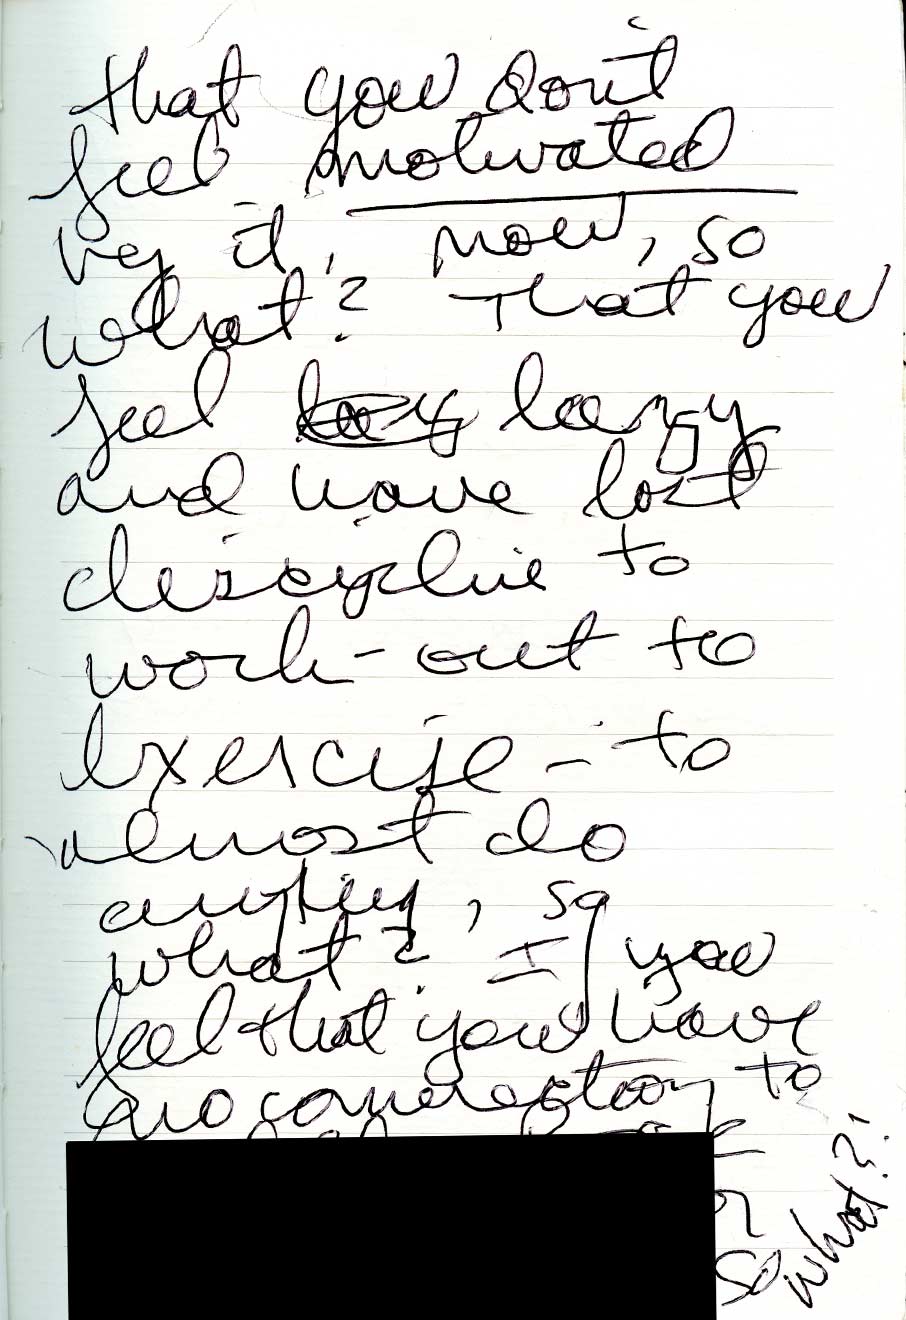 that you don't
feel motivated
by it, now, so
what? That you
feel lazy
and have lost
discipline to
work-out to
exercise - to
almost do
anything, so
what? If you
feel that you have
no connection to
or
So what?!